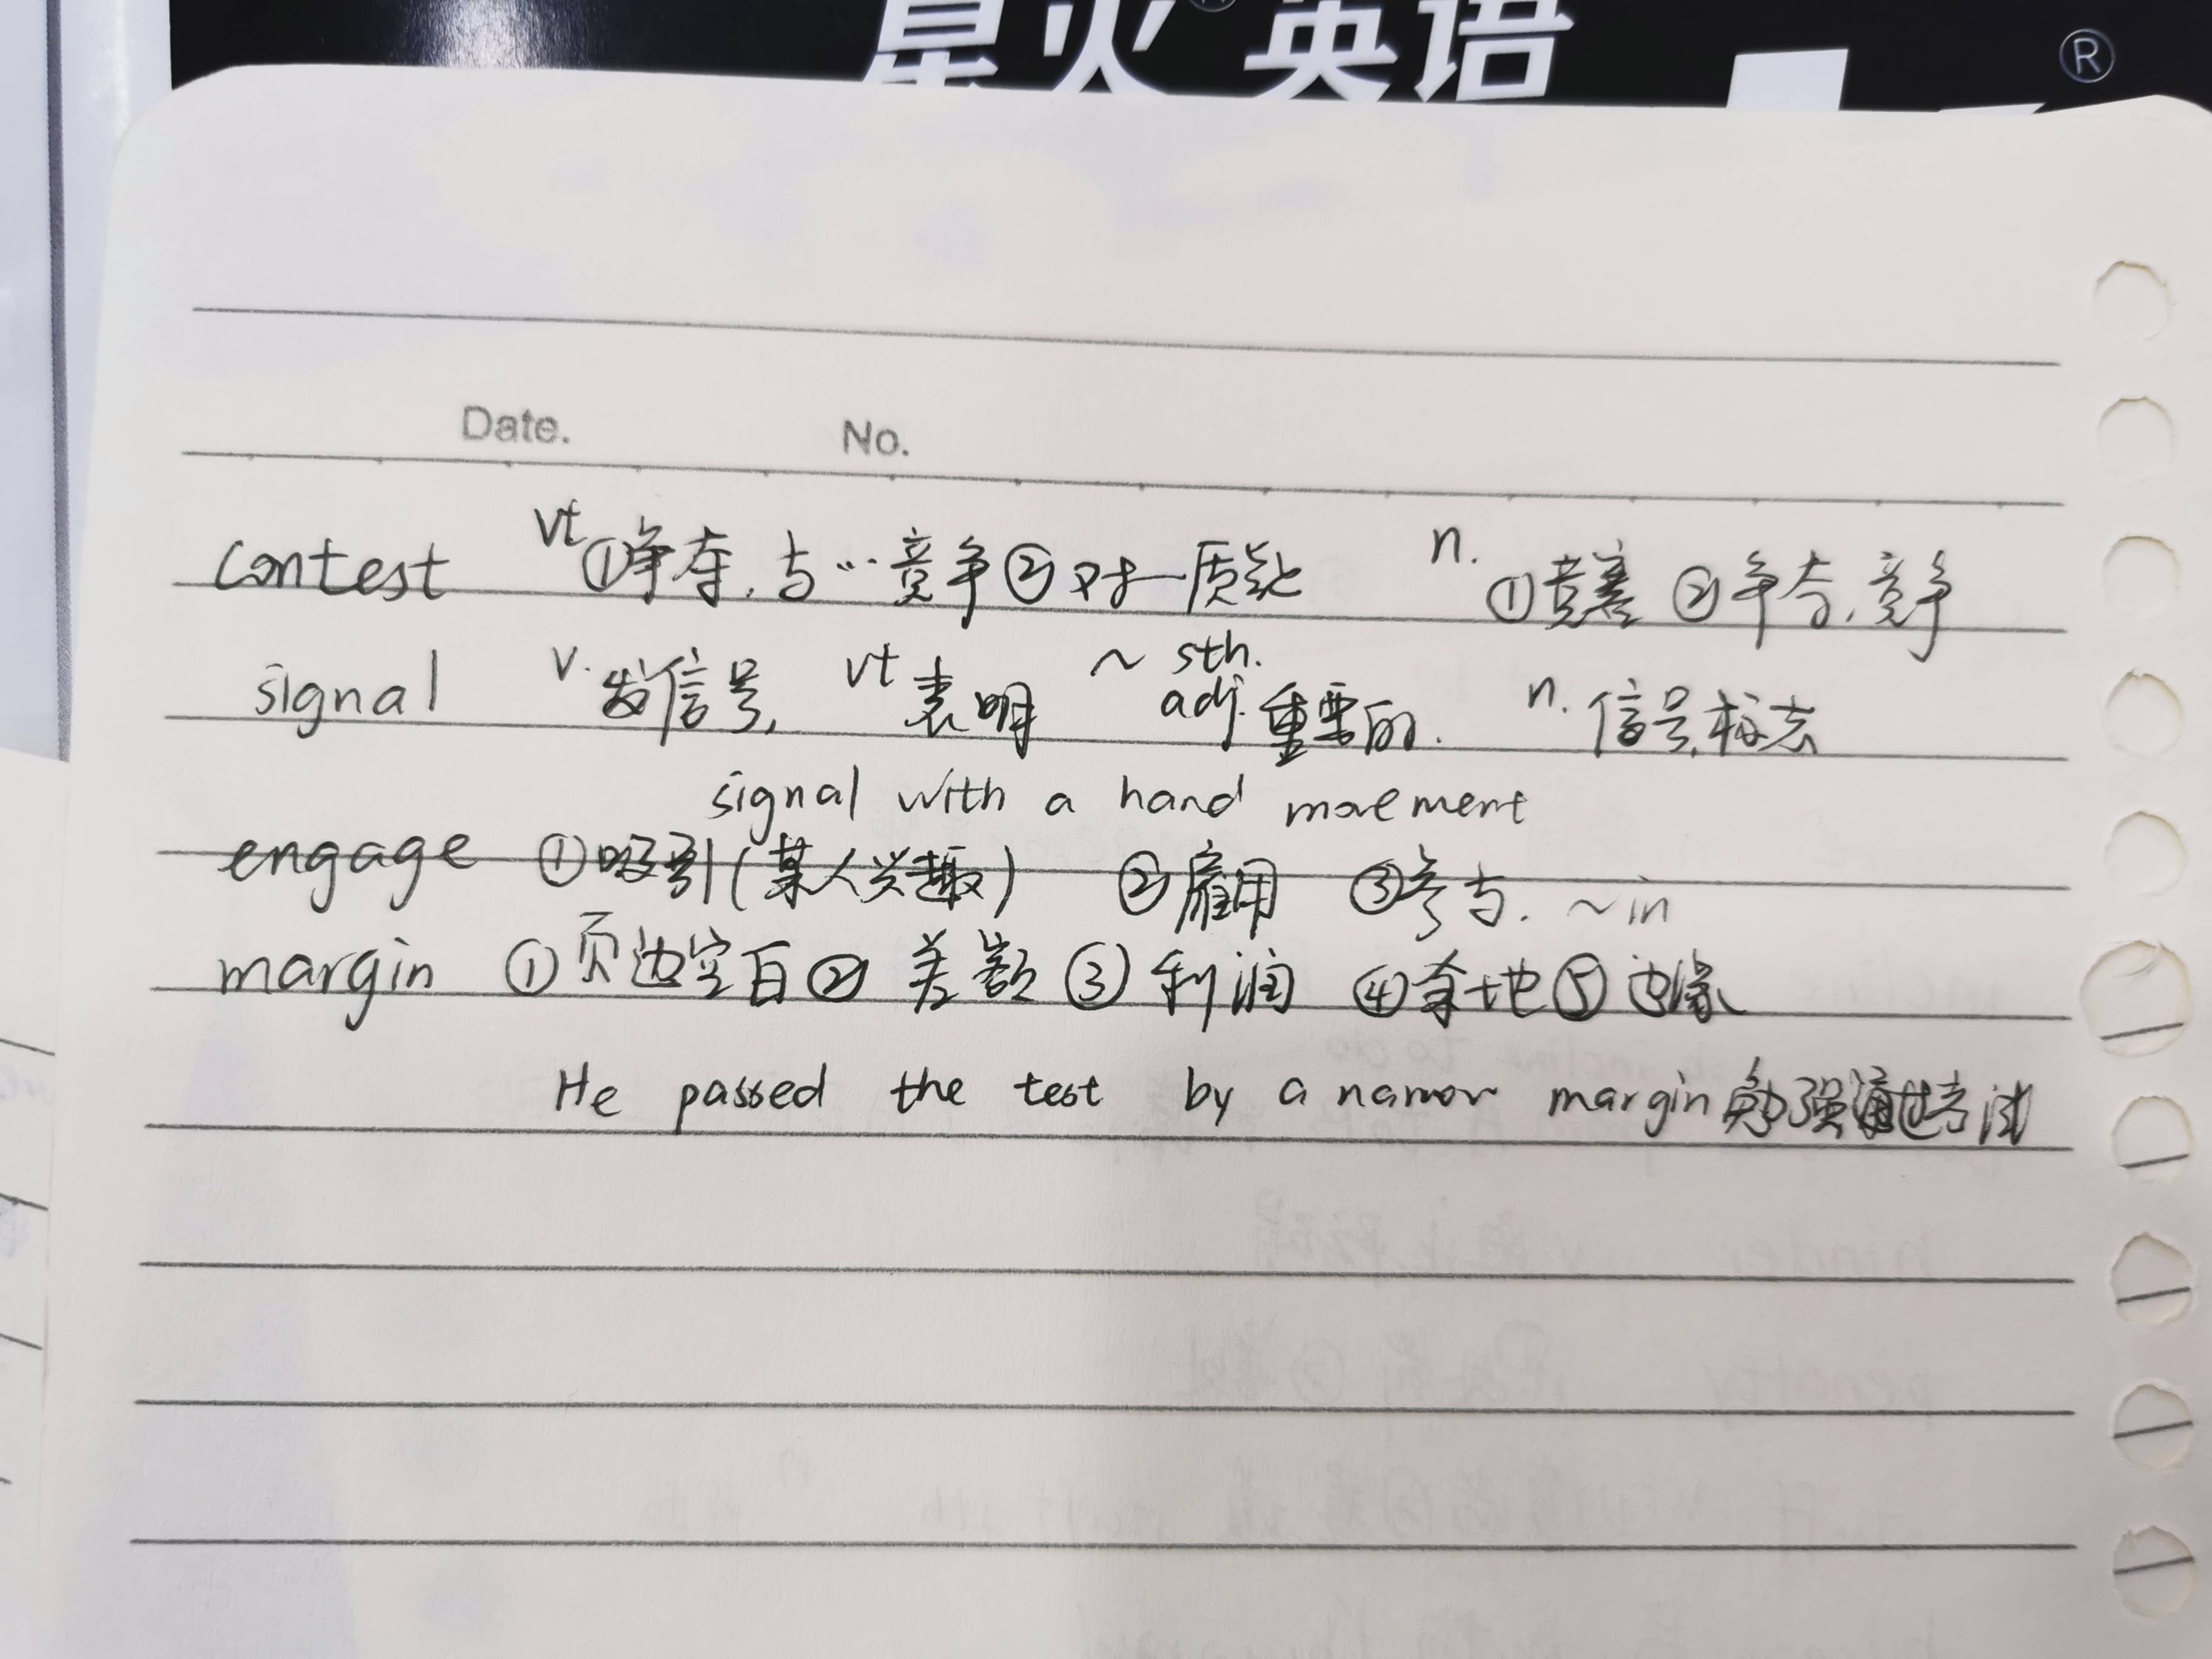 星火 英语 ®
Date. No.
contest vt ①争夺,与…竞争 ②对…质疑 n. ①竞赛 ②争夺,竞争
signal v. 发信号, vt 表明 ~ sth. adj. 重要的. n. 信号,标志
signal with a hand movement
engage ①吸引(某人兴趣) ②雇用 ③参与. ~ in
margin ①页边空白 ② 差额 ③ 利润 ④余地 ⑤ 边缘
He passed the test by a narrow margin 勉强通过考试